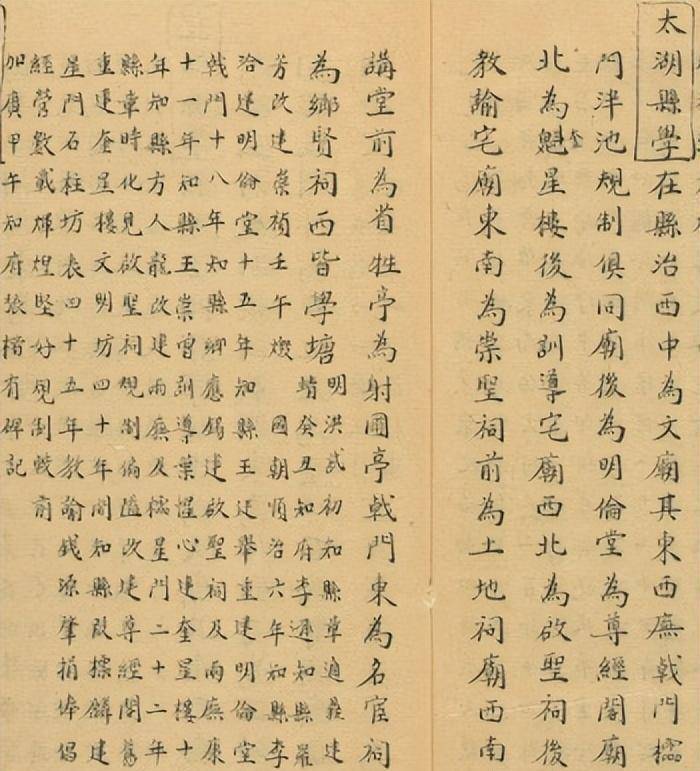 太湖縣學在縣治西中為文廟其東西廡戟門櫺
門泮池規制俱同廟後為明倫堂為尊經閣廟
北為魁奎星樓後為訓導宅廟西北為啟聖祠後
教諭宅廟東南為崇聖祠前為土地祠廟西南
講堂前為省牲亭為射圃亭戟門東為名宦祠
為鄉賢祠西皆學塘
明洪武初知縣章過建
癸丑知府李遜知縣羅
芳改建崇禎壬午燬 國朝順治六年知縣李
洽建明倫堂十五年知縣王廷舉重建明倫堂
戟門十八年知縣鄉應錫建啟聖祠及兩廡康
十一年知縣王崇曾訓導葉惺心建奎星樓十
年知縣方人龍改建兩廡及櫺星門二十二年
縣章時化見啟聖祠規制偏隘改建尊經閣舊
重建奎星樓文明坊四十年間知縣攄麟建
星門石柱坊表四十五年教諭錢源肇捐俸倡
經營數載煇煌堅好規制較前
加廣甲午知府張楷有碑記